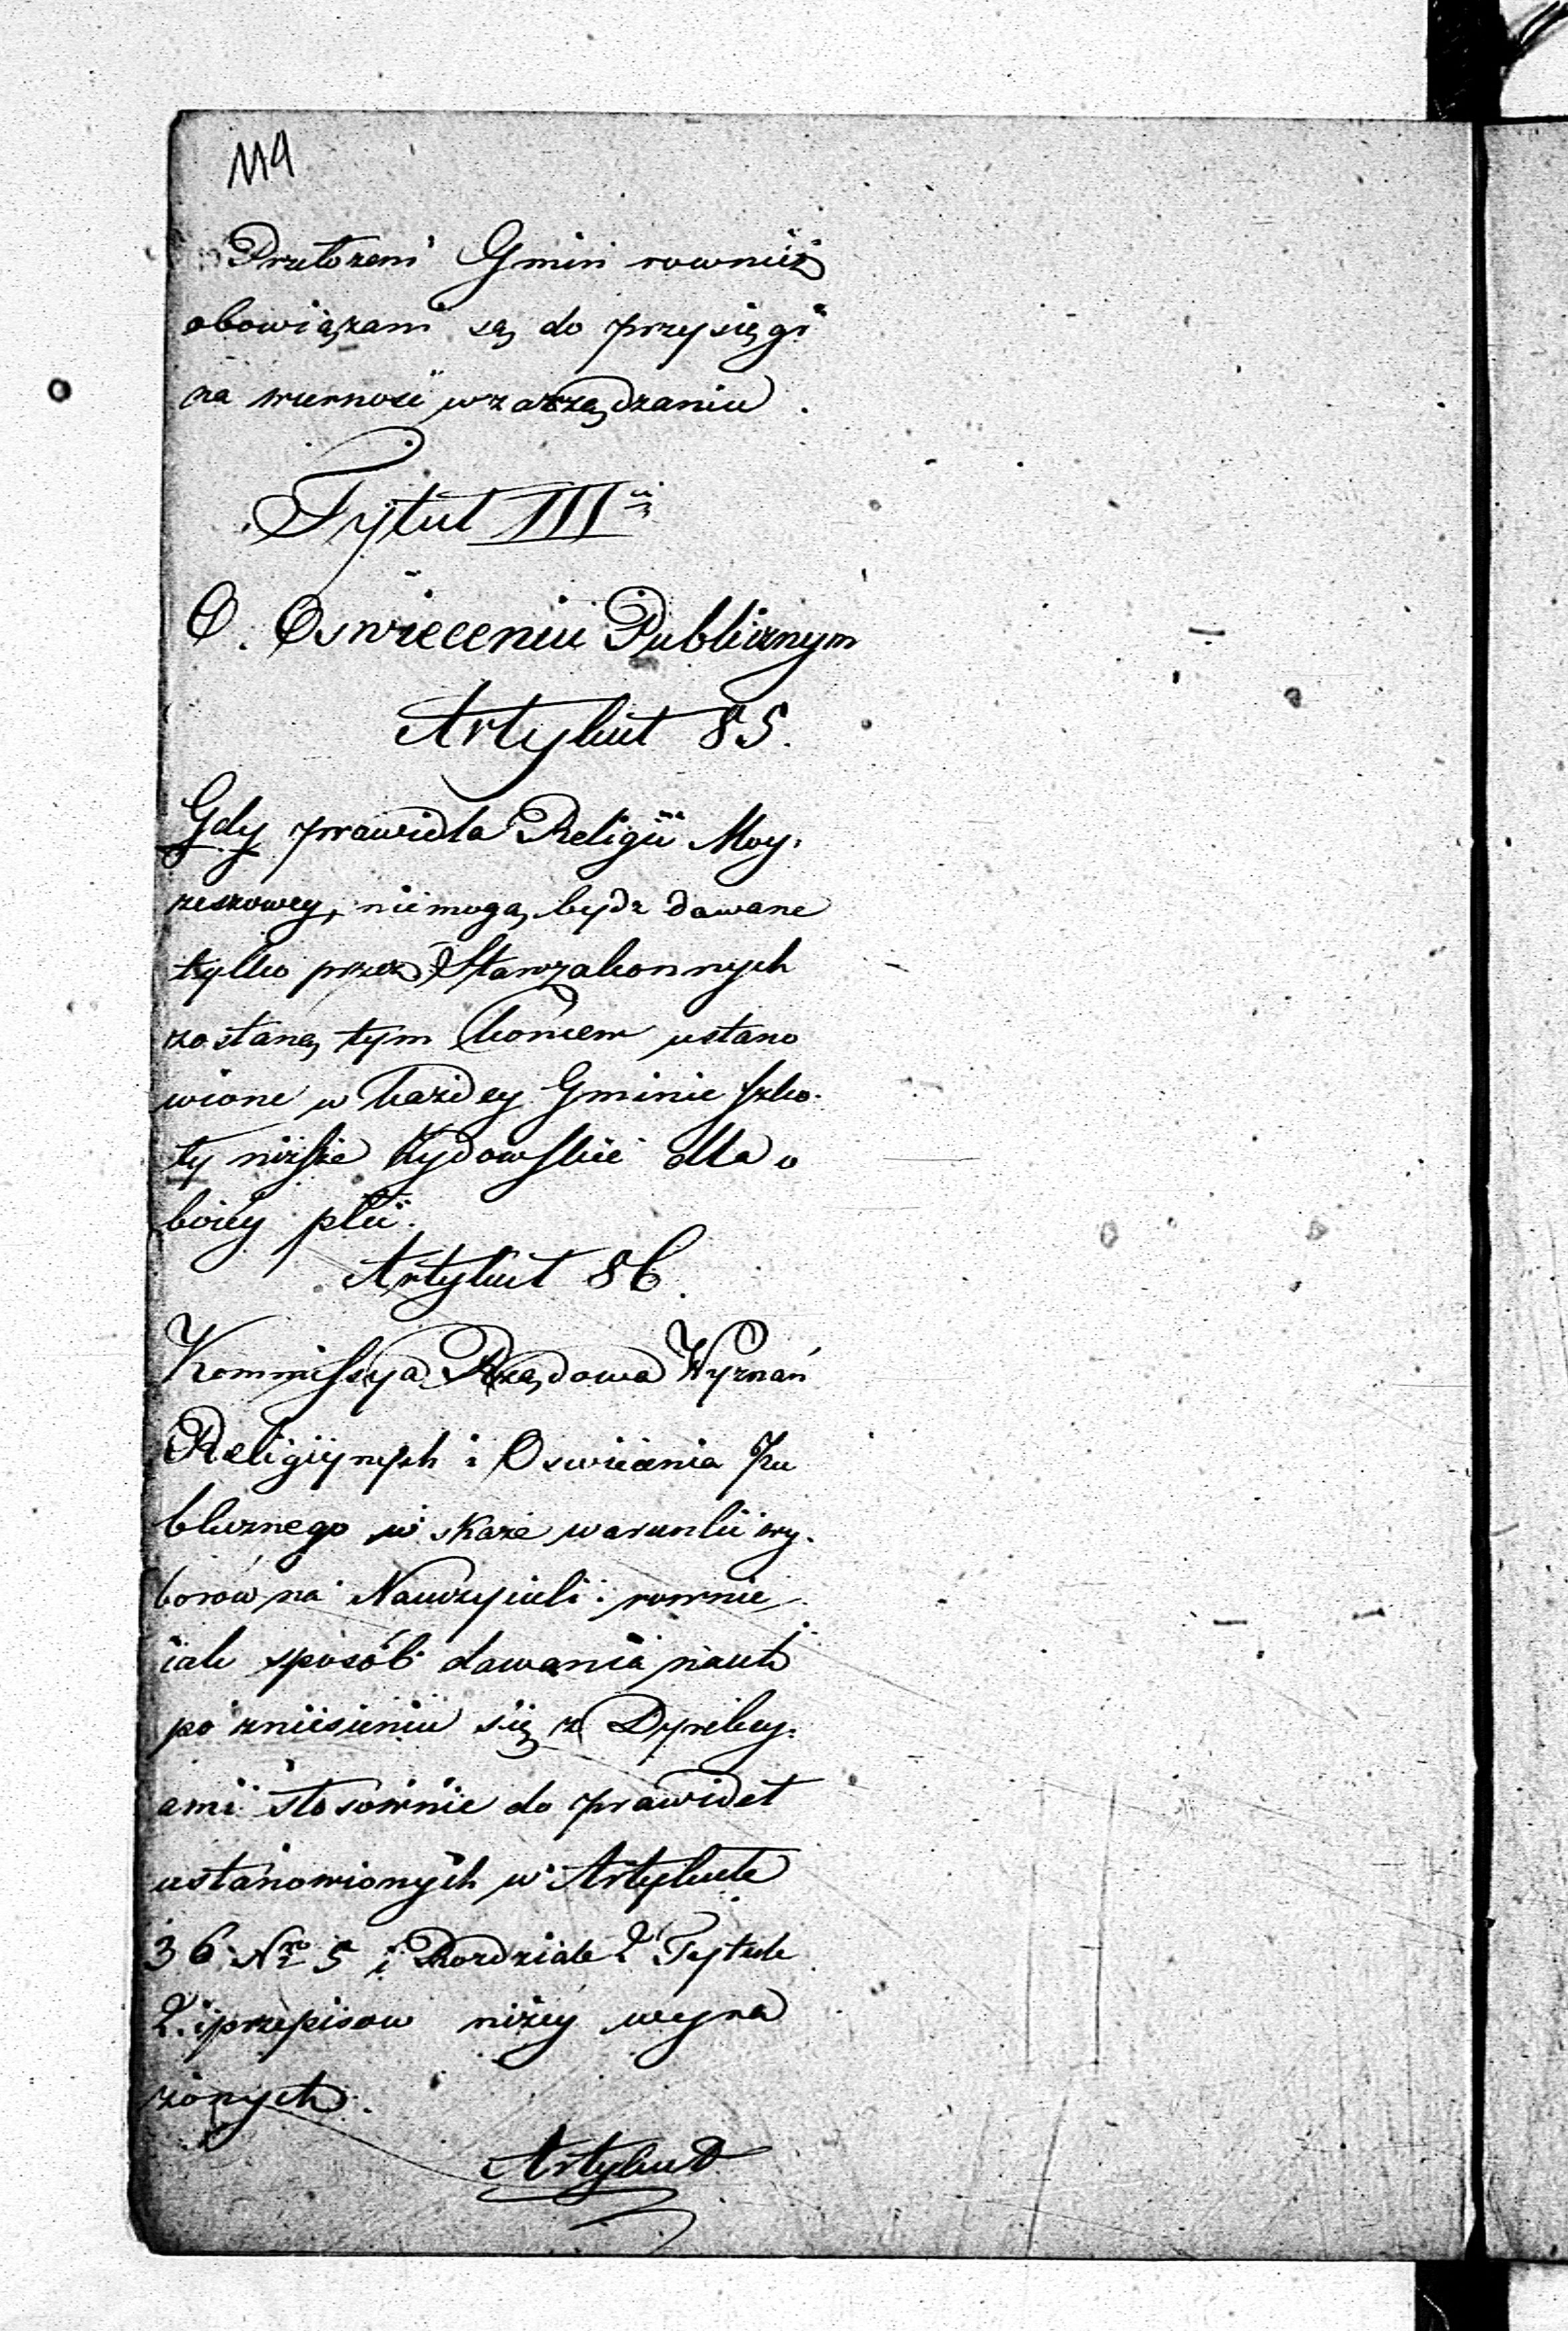 119
Przełożeni Gmin rownież
obowiązani są do przysięgi
na wiernosć w zarządzaniu.
Tytuł III
O. Oswieceniu Publicznym
Artykuł 85.
Gdy prawidła Religii Moy-
zeszowey, nie mogą bydz dawane
tylko przez Starozakonnych
zostaną tym koncem ustano
wione w każdey Gminie szko-
ły niższe Żydowskie dla o
boiéy płci.
Artykuł 86.
Kommissya Rządowa Wyznań
Religiynych i Oswiecenia Pu
blicznego w skaże warunki wy-
borow na Nauczycieli. rownie
iak sposób dawania nauk
po zniesieniu się z Dyrekcy-
ami stosownie do prawideł
ustanowionych w Artykule
36 Nro 5 i Rozdziale 2 Tytule
2. i przepisow niżey wyra
żonych.
Artykuł